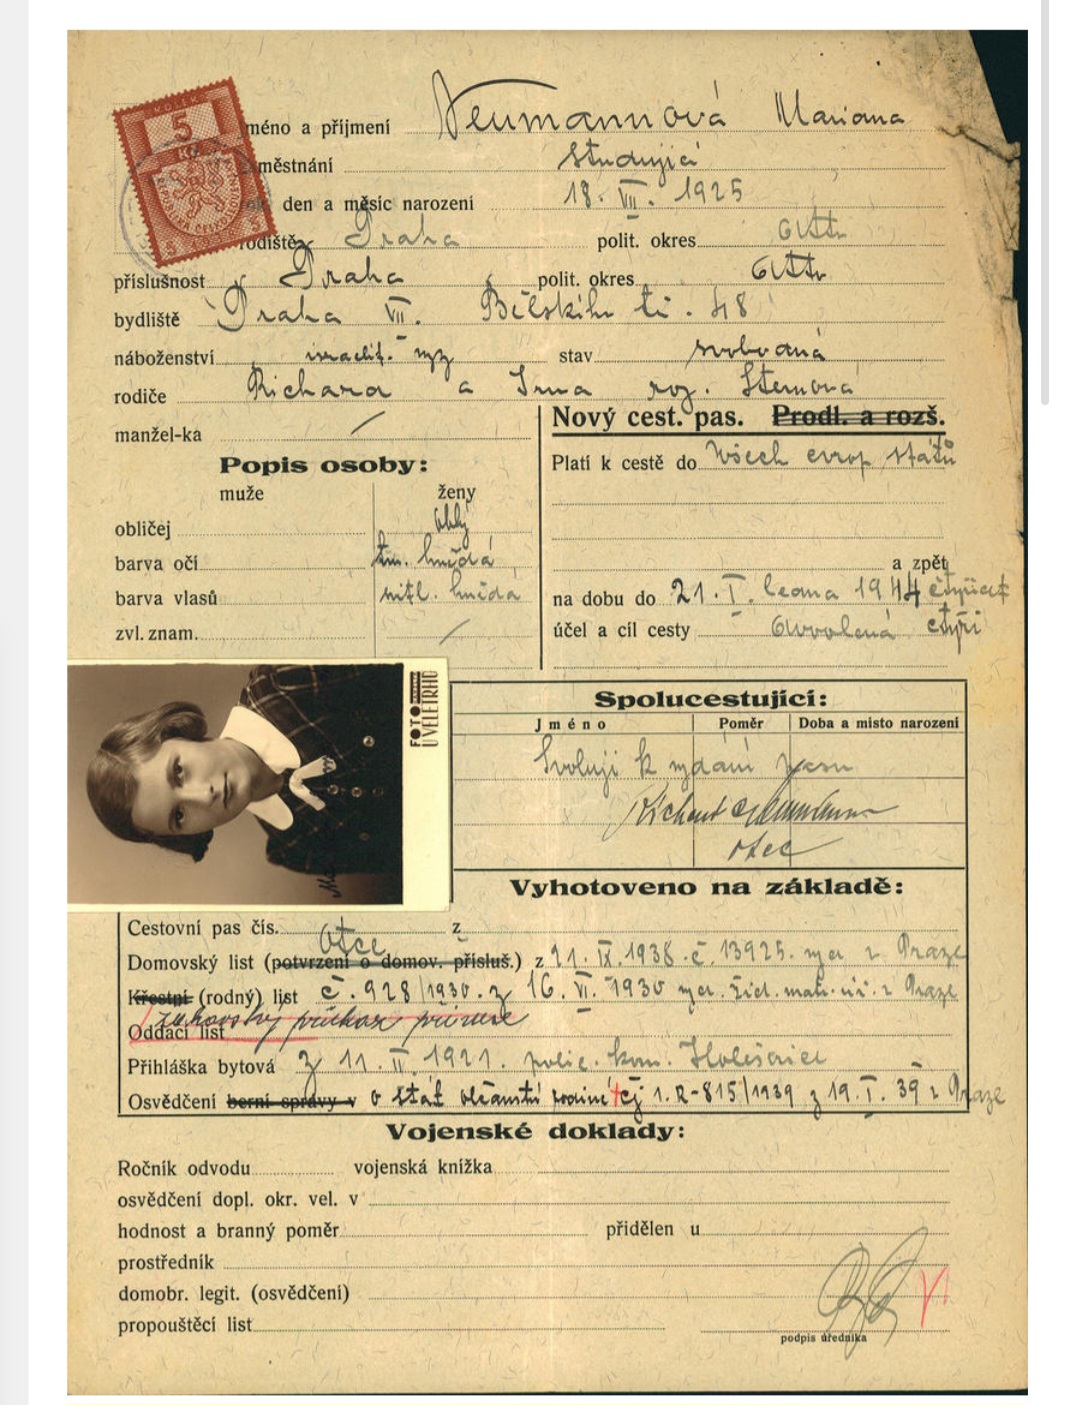 KOLEK
5
Kč
jméno a příjmení Neumannová Mariana
zaměstnání studující
rok, den a měsíc narození 18. VII. 1925
rodiště Praha polit. okres
příslušnost Praha polit. okres
bydliště Praha VII. Bělského tř. 48
náboženství israelit. stav svobodná
rodiče Richard a Irma roz. Sternová
manžel-ka /
Nový cest. pas. Prodl. a rozš.
Platí k cestě do všech evrop. států
Popis osoby:
muže ženy
obličej oblý
barva očí tm. hnědá
barva vlasů světl. hnědá
zvl. znam. /
a zpět
na dobu do 21. I. ledna 1944 čtyřicet
účel a cíl cesty čtyři
FOTO
U VELETRHŮ
Spolucestující:
Jméno Poměr Doba a místo narození
Svoluji k vydání pasu
Richard Neumann
otec
Vyhotoveno na základě:
Cestovní pas čís. z
otce
Domovský list (potvrzení o domov. přísluš.) z 21. IX. 1938 č. 13925. v Praze
Křestní (rodný) list č. 928/1930. z 16. VI. 1930 žid. mat. v Praze
žákovský průkaz
Oddací list
Přihláška bytová z 11. II. 1921. polic. kom. Holešovice
Osvědčení berní správy v o stát. občanství č.j. 1.R-815/1939 z 19. I. 39 v Praze
Vojenské doklady:
Ročník odvodu vojenská knížka
osvědčení dopl. okr. vel. v
hodnost a branný poměr přidělen u
prostředník
domobr. legit. (osvědčení)
propouštěcí list
podpis úředníka